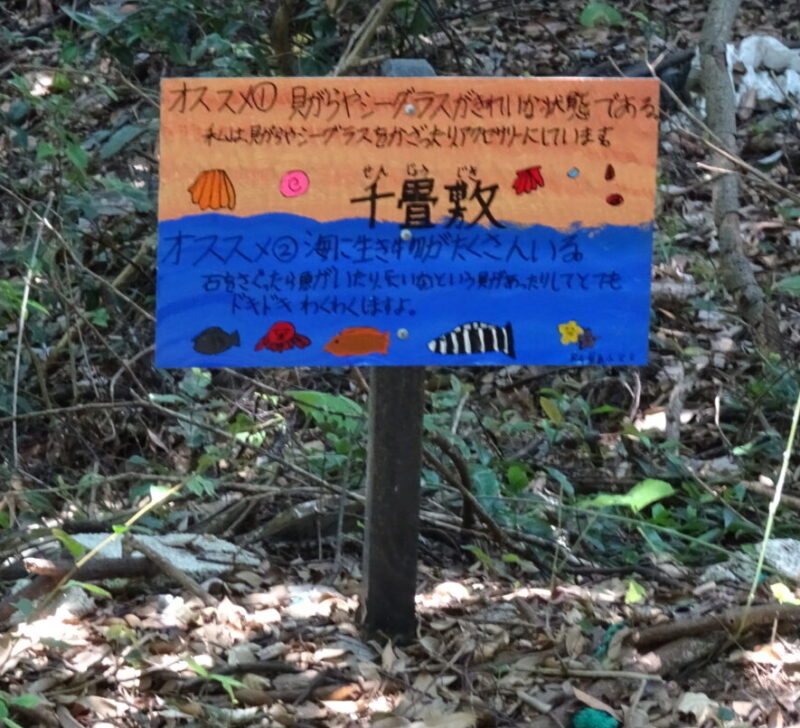 オススメ① 貝がらやシーグラスがきれいな状態である。
私は、貝がらやシーグラスをかざったりアクセサリーにしています
せんじょうじき
千畳敷
オススメ② 海に生き物がたくさんいる。
石をさぐったら魚がいたり、という貝があったりしてとても
ドキドキわくわくしますよ。